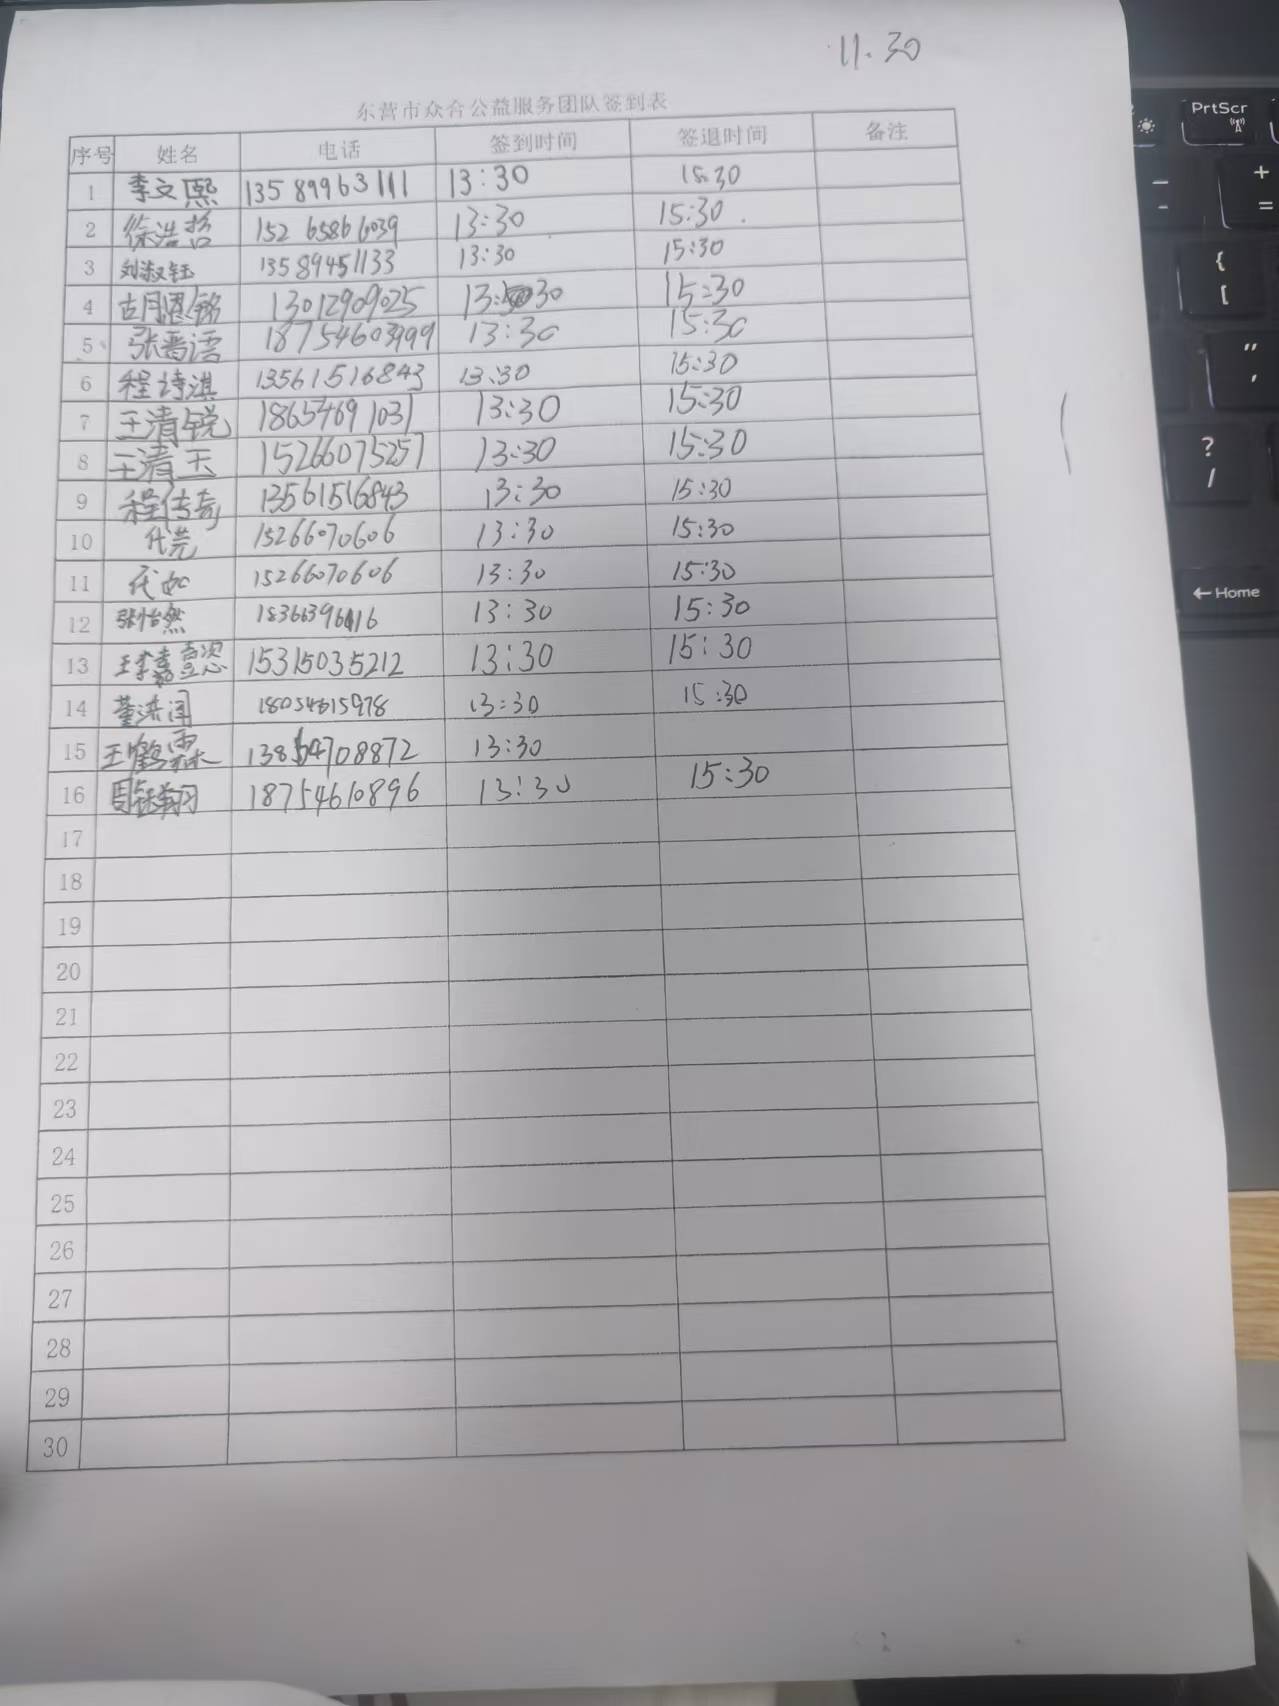 11.30
东营市众合公益服务团队签到表
序号 姓名 电话 签到时间 签退时间 备注
1 李文熙 13589963111 13:30 15:30
2 徐浩哲 15265866039 13:30 15:30
3 刘淑钰 13589451133 13:30 15:30
4 胡恩铭 13012909025 13:30 15:30
5 张晋 18754603999 13:30 15:30
6 程诗淇 13561516843 13:30 15:30
7 王清锐 18654691031 13:30 15:30
8 王清玉 15266075257 13:30 15:30
9 程传奇 13561516843 13:30 15:30
10 代芫 15266070606 13:30 15:30
11 代如 15266070606 13:30 15:30
12 张怡然 13:30 15:30
13 王李嘉懿 15315035212 13:30 15:30
14 董洪闰 13:30 15:30
15 王鹤霖 13854708872 13:30
16 周钰翔 18754610896 13:30 15:30
17
18
19
20
21
22
23
24
25
26
27
28
29
30
PrtScr
+
=
{
[
"
'
?
/
←Home